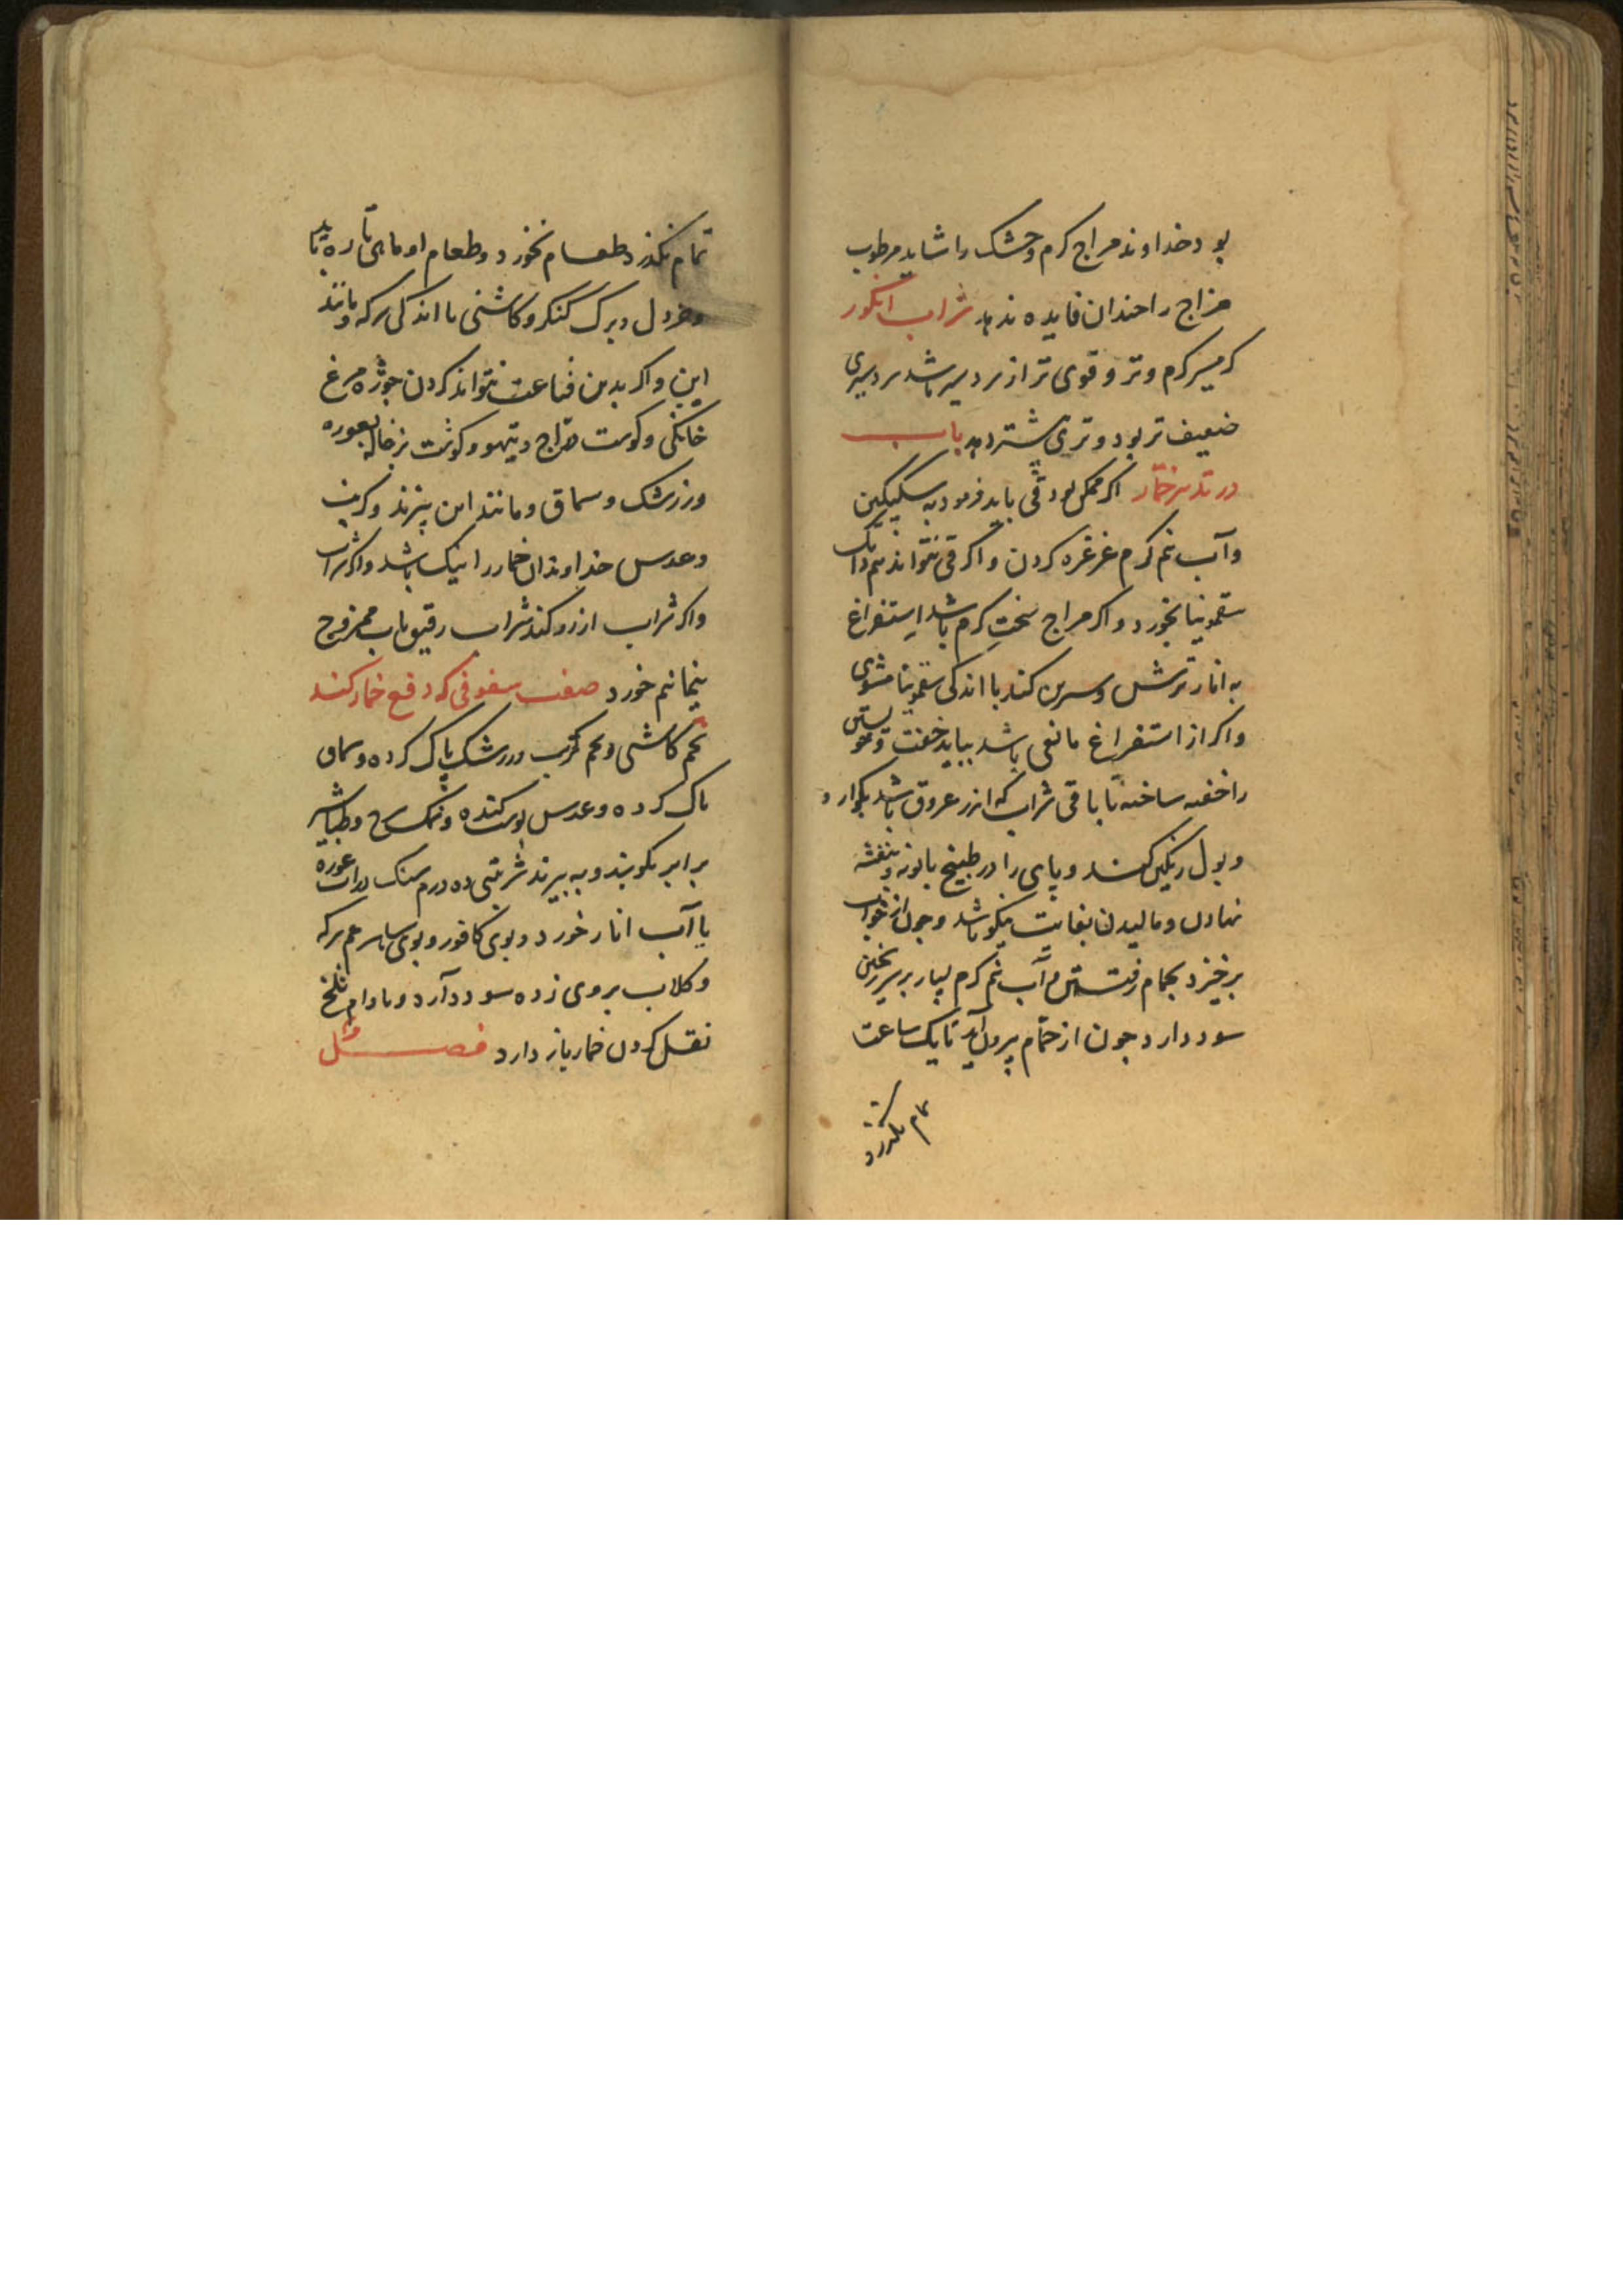 بود خداوند مزاج کرم وخشک را شاید مرطوب
مزاج را چندان فایده ندهد شراب انکور
کرمسیر کرم وتر و قوی تر از سردسیر باشد سردسیری
ضعیف تر بود و تری بیشتر دهد باب
در تدبیر خمار اکر ممکن بود قی باید فرمود به سکنکبین
وآب نیم کرم غرغره کردن واکر قی نتواند نیم دانک
سقمونیا بخورد واکر مزاج سخت کرم باشد استفراغ
به انار ترش وسرین کند با اندکی سقمونیا مشوی
واکر از استفراغ مانعی باشد بباید خفت وخویشتن
را خفته ساختن تا باقی شراب که اندر عروق باشد بکوارد
وبول رنکین کند وپای را در طبیخ بابونه وبنفشه
نهادن ومالیدن بغایت نیکو باشد وچون از خواب
برخیزد بحمام رفتن وآب نیم کرم بسیار بر سر ریختن
سود دارد چون از حمام بیرون آید تا یک ساعت
تمام بکذرد
تمام نکذرد طعام نخورد وطعام او ماهی تازه باید با
وخردل وبرک کنکر وکاشنی با اندکی سرکه ومانند
این واکر بدین قناعت نتواند کردن جوژه مرغ
خانکی وکوشت دراج وتیهو وکوشت بزغاله بغوره
وزرشک وسماق ومانند این پزند وکرنب
وعدس خداوندان خمار را نیک باشد واکر شراب
واکر شراب آرزو کند شراب رقیق باب ممزوج
خورد صفت سفوفی که دفع خمار کند
تخم کاشنی وتخم کرنب وزرشک پاک کرده وسماق
پاک کرده وعدس پوست کنده وکل سرخ وطباشیر
برابر بکوبند وبه بیزند شربتی ده درم سنک بآب غوره
یا آب انار خورد وبوی کافور وبوی شاسپرغم سرکه
وکلاب بروی زده سود دارد وبادام تلخ
نقل کردن خمار باز دارد فصل